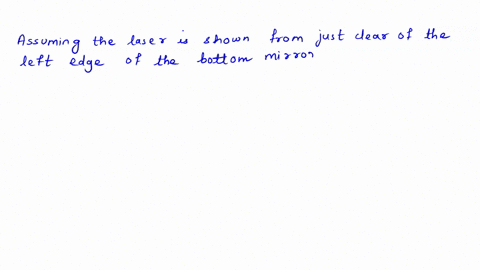 Assuming the laser is shown from just clear of the
left edge of the bottom mirror